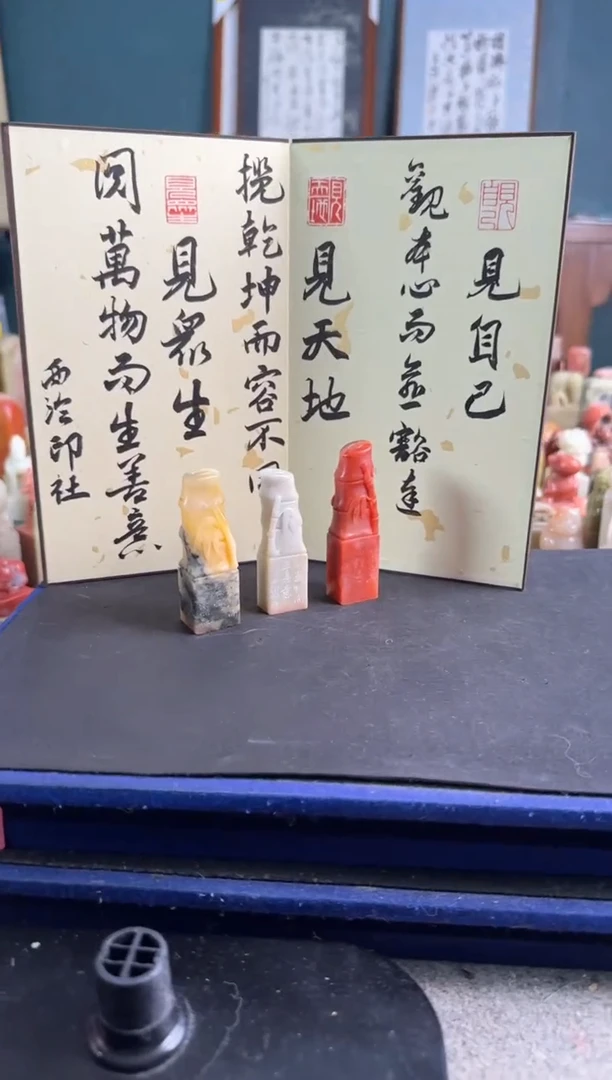 見自己
觀本心而益豁達
見天地
攬乾坤而容不同
見眾生
閱萬物而生善意
西泠印社